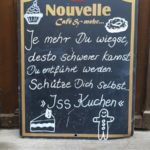 Nouvelle
Café & mehr...
Je mehr Du wiegst,
desto schwerer kannst
Du entführt werden.
Schütze Dich selbst.
» Iss Kuchen «